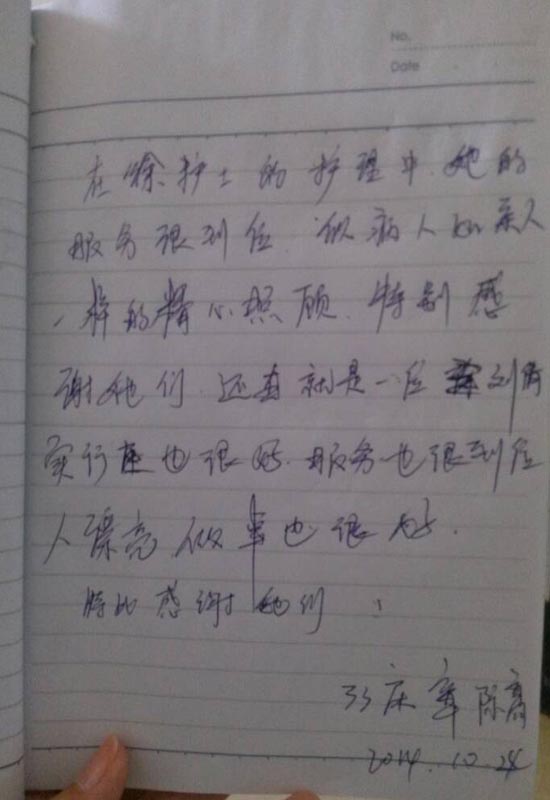 No.
Date
在徐护士的护理中.她的
服务很到位.似病人如亲人
一样的精心照顾.特别感
谢她们.还有就是一位到
实行也很好.服务也很到位
人漂亮做事也很好.
特此感谢她们！
床 陈
2014.10.24